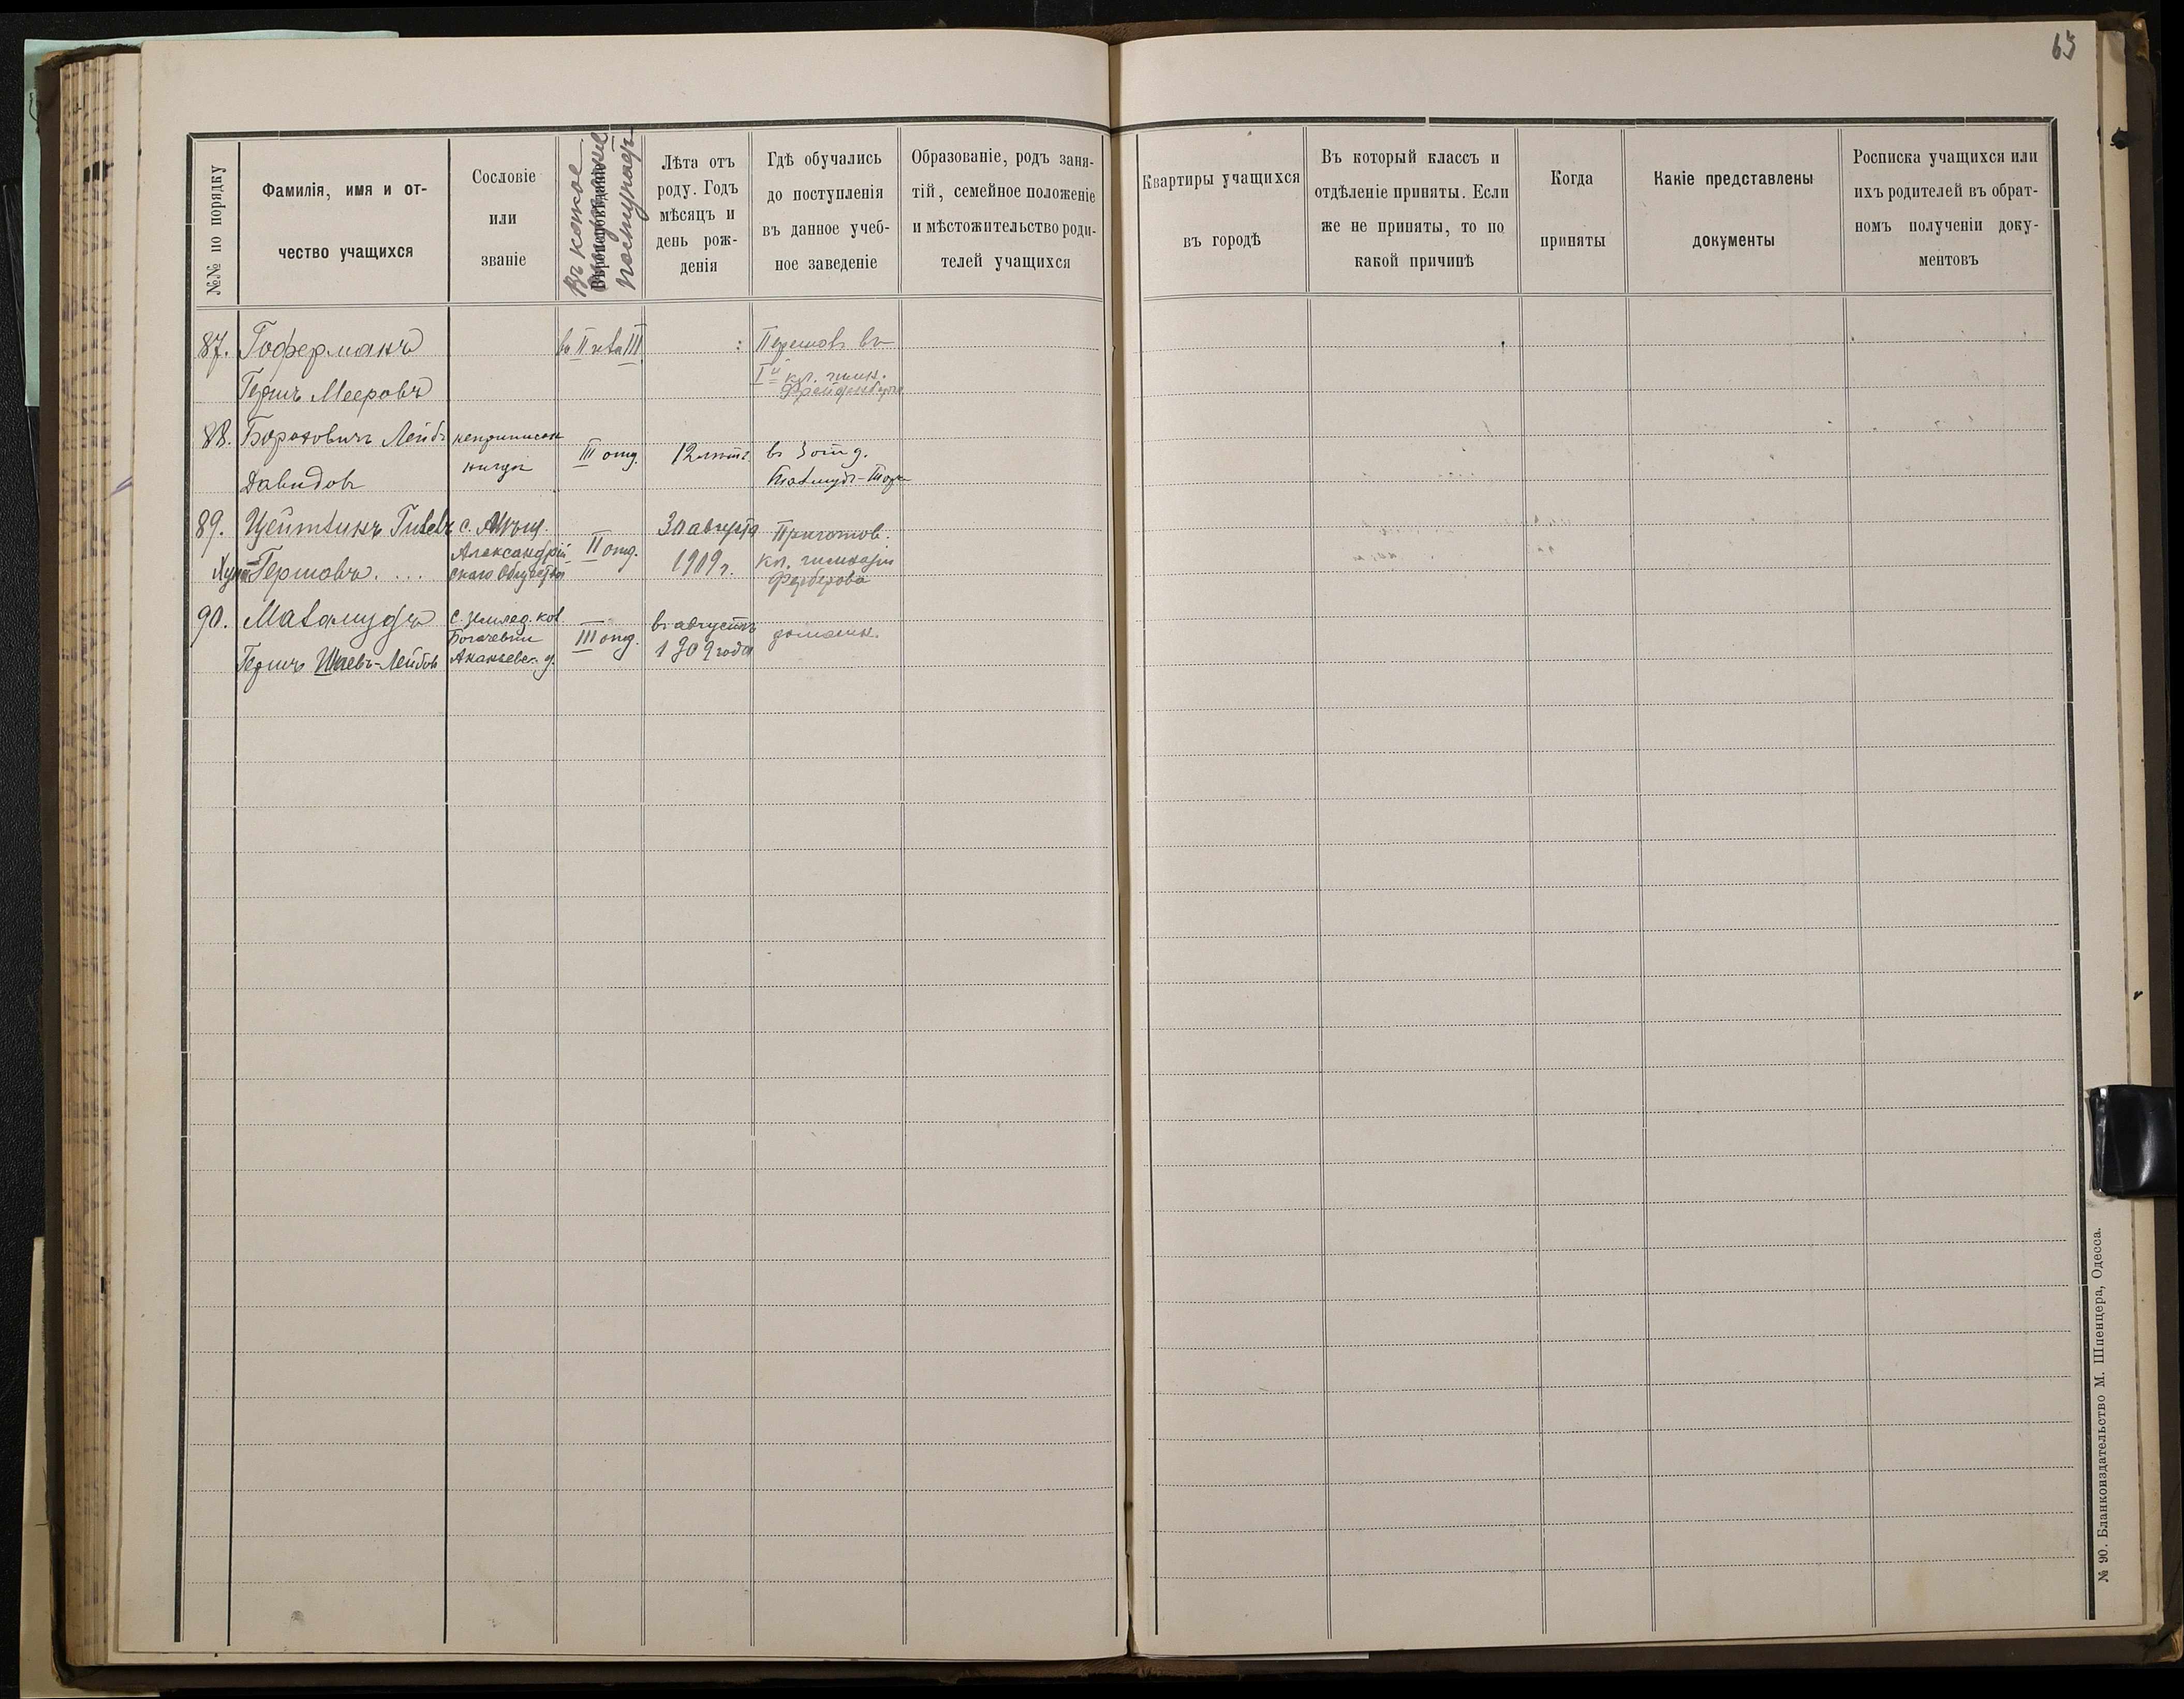 65
№№ по порядку
Фамилія, имя и от-
чество учащихся
Сословіе
или
званіе
Въ какое
поступаютъ
Лѣта отъ
роду. Годъ
мѣсяцъ и
день рож-
денія
Гдѣ обучались
до поступленія
въ данное учеб-
ное заведеніе
Образованіе, родъ заня-
тій, семейное положеніе
и мѣстожительство роди-
телей учащихся
Квартиры учащихся
въ городѣ
Въ который классъ и
отдѣленіе приняты. Если
же не приняты, то по
какой причинѣ
Когда
приняты
Какіе представлены
документы
Росписка учащихся или
ихъ родителей въ обрат-
номъ полученіи доку-
ментовъ
87. Гоферманъ
Гершъ Мееровъ
въ II III
Перешовъ въ
I й кл. гимн.
88. Борохович Лейбъ
Давидовъ
неприписан
нигдѣ
III отд.
12 лѣтъ
въ 3 отд.
Талмудъ-Тора
89. Цейтлинъ
Гершовъ
с. Мѣщ.
Александрій
скаго Общества
II отд.
30 августа
1909 г.
Приготов.
кл. гимназіи
90.
Гершъ Шаевъ-Лейбов
с. землед. кол.
Ананьевск. у.
III отд.
въ августѣ
1909 года
домашн.
№ 90. Бланкоиздательство М. Шпенцера, Одесса.